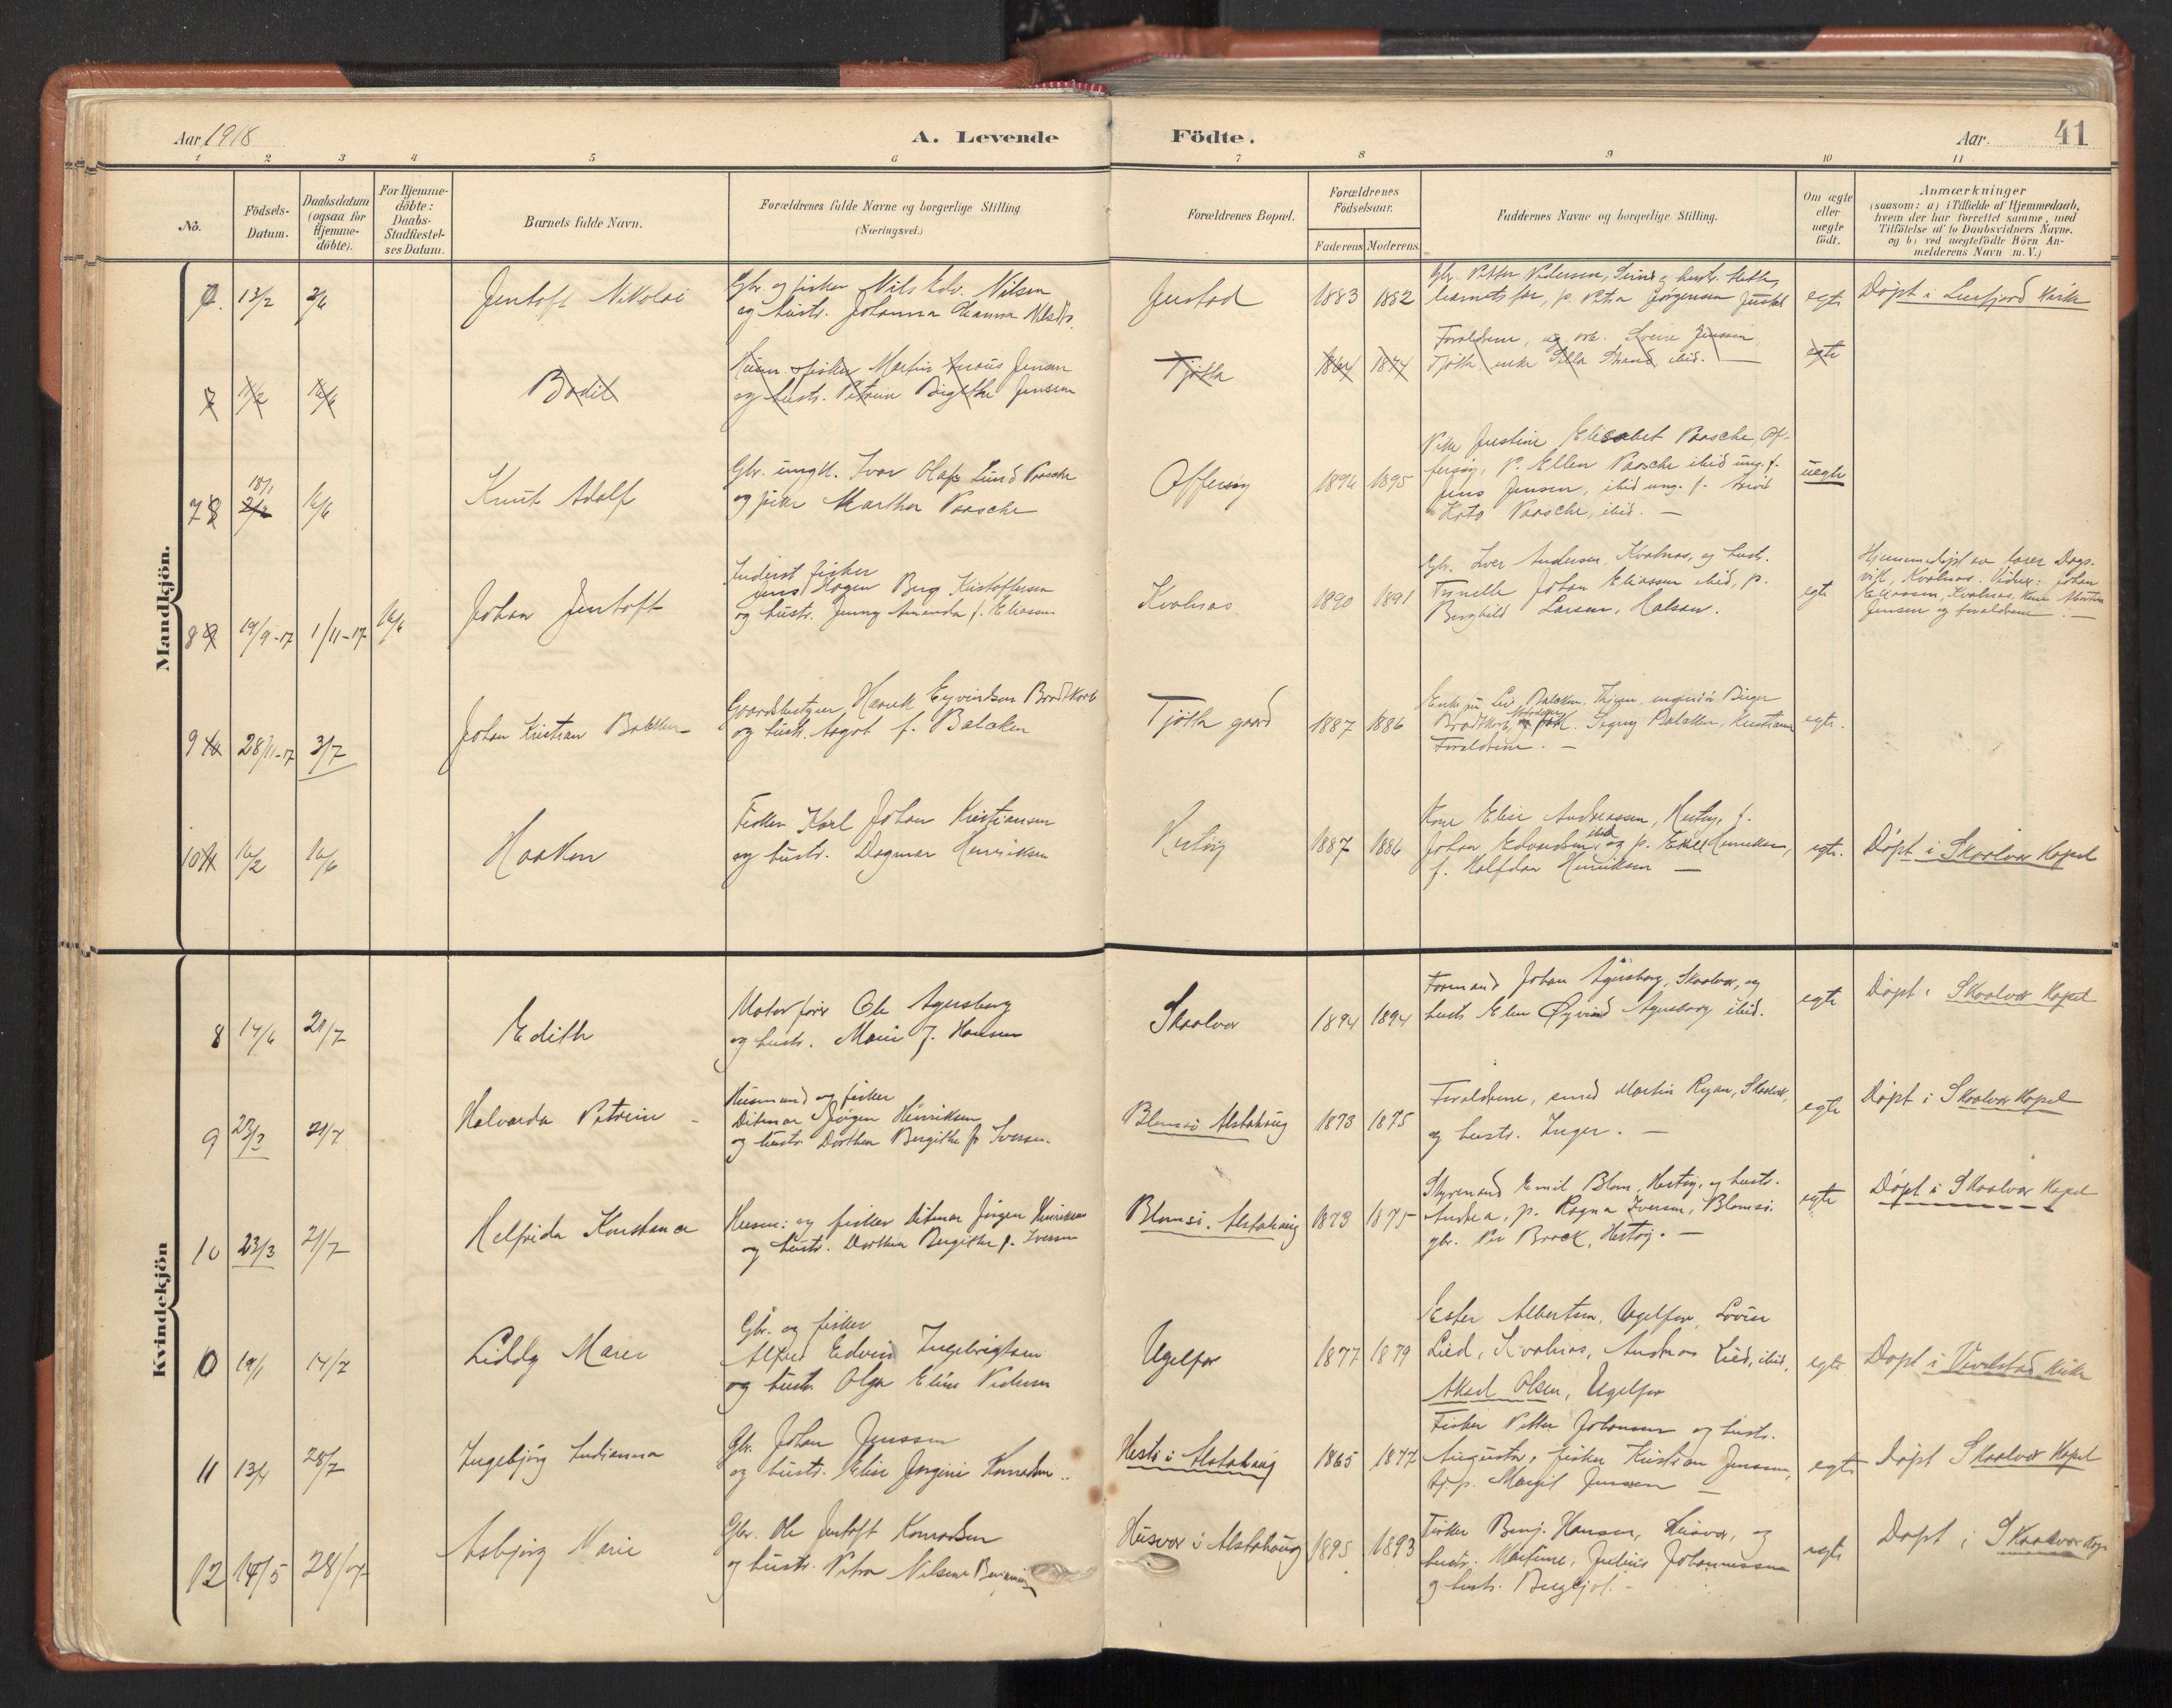 Aar 1918
A. Levende
Födte.
Aar.
41
1 2 3 4 5 6 7 8 9 10 11
No.
Födsels-
Datum.
Daabsdatum
(ogsaa for
Hjemme-
döbte).
For Hjemme-
döbte:
Daabs-
Stadfæstel-
ses Datum.
Barnets fulde Navn.
Forældrenes fulde Navne og borgerlige Stilling
(Næringsvei.)
Forældrenes Bopæl.
Forældrenes
Födselsaar.
Faderens Moderens
Faddernes Navne og borgerlige Stilling.
Om ægte
eller
uægte
födt.
Anmærkninger
(saasom: a) i Tilfælde af Hjemmedaab,
hvem der har forrettet samme, med
Tilföielse af to Daabsvidners Navne.
og b) ved uægtefödte Börn An-
melderens Navn m. V.)
Mandkjön.
13/2
2/6
Jentoft Nikolai
Gbr. og fisker Nils Edv. Nilsen
og hustr. Johanna Hanna
Justad
1883 1882
Gbr. Petter Pedersen,
barnets far, p. Petra Jörgensen
egte
Döpt i Leirfjord kirke
7
11/2
16/6
Bodil
fisker Martin Jensen
og hustr. Petrine Birgithe Jenssen
Tjötta
1864 1874
Forældrene, og
Tjötta enke Strand ibid.
egte
7 8
18/1
16/6
Knut Adolf
Gbr. ungk. Ivar Olaf Lund Paasche
og pike Martha Paasche
Offersøy
1894 1895
Pike Justine Elisabet Paasche, Of-
fersøy, p. Ellen Paasche ibid ung. f.
Jens Jensen, ibid ung. f.
Paasche, ibid.
uegte
8 9
19/9-17
1/11-17
16/6
Johan Jentoft
Inderst fisker
Jens Hagen Berg Kristoffersen
og hustr. Jenny Amanda f. Eliassen
Kvalnes
1890 1891
Gbr. Iver Andersen Kvalnes, og hustr.
Johan Eliassen ibid, p.
Borghild Larsen,
egte
Hjemmedöpt av lærer Dags-
vik, Kvalnes. Vidner: Johan
Eliassen, Kvalnes, kone
Jensen og forældrene.
9 10
28/11-17
3/7
Johan Kristian Balcken
Gaardsbestyrer Hauk Eyvindson Brodtkorb
og hustr. Aagot f. Balcken
Tjötta gaard
1887 1886
Balcken, ingeniör Birger
Brodtkorb, Signy Balcken, Kristiania
Forældrene.
egte.
10 11
16/2
16/6
Haakon
Fisker Karl Johan Kristiansen
og hustr. Dagmar Henriksen
Hestöy
1887 1886
Kone Elise Andreassen, Hestöy, f.
Johan Edvardsen ibid og p. Henriksen,
f. Halfdan Henriksen
egte.
Döpt i Skaalvær Kapel
Kvindekjön
8
14/6
21/7
Edith
Motorförer Ole Agersborg
og hustr. Marie f. Hansen
Skaalvær
1894 1894
Formand Johan Agersborg, Skaalvær, og
hustr. Elen Öyvind Agersborg ibid.
egte
Döpt i Skaalvær Kapel
9
23/3
21/7
Halvarda Petrine
Husmand og fisker
Ditmar Jörgen Henriksen
og hustr. Dorthea Bergithe f. Iversen.
Blomsö Alstahaug
1873 1875
Forældrene, smed Martin Ryan, Skaalvær,
og hustr. Inger.
egte
Döpt i Skaalvær Kapel
10
23/3
21/7
Helfrida Konstance
Husm: og fisker Ditmar Jörgen Henriksen
og hustr. Dorthea Bergithe f. Iversen
Blomsö. Alstahaug
1873 1875
Styrmand Emil Blom, Hestöy, og hustr.
Andrea, p. Ragna Iversen, Blomsö
gbr. Per Brock, Hestöy.
egte
Döpt i Skaalvær Kapel
10
19/1
14/7
Liddy Marie
Gbr. og fisker
Alfred Edvin Ingebrigtsen
og hustr Olga Eline Pedersen
Ugelfor
1877 1879
Ester Albertsen, Ugelfor, Lovise
Lied, Kvalnes, Andreas Lied, ibid.
Aksel Olsen, Ugelfor
egte
Döpt i Vevelstad kirke
11
13/4
28/7
Ingebjörg Indianna
Gbr. Johan Jenssen
og hustr. Elise Jorgine Konradsen.
Hestö i Alstahaug
1865 1877
Fisker Petter Johansen og hustr.
Augusta, fisker Kristian Jenssen,
p. Margit Jenssen
egte
Döpt Skaalvær Kapel
12
14/5
28/7
Asbjörg Marie
Gbr. Ole Jentoft Konradsen
og hustr. Petra Nilsine Benjaminsen
Husvær i Alstahaug
1895 1893
Fisker Benj. Hansen, Husvær, og
hustr. Martine, Julius Johannessen
og hustr. Bergljot.
egte
Döpt i Skaalvær Kap.